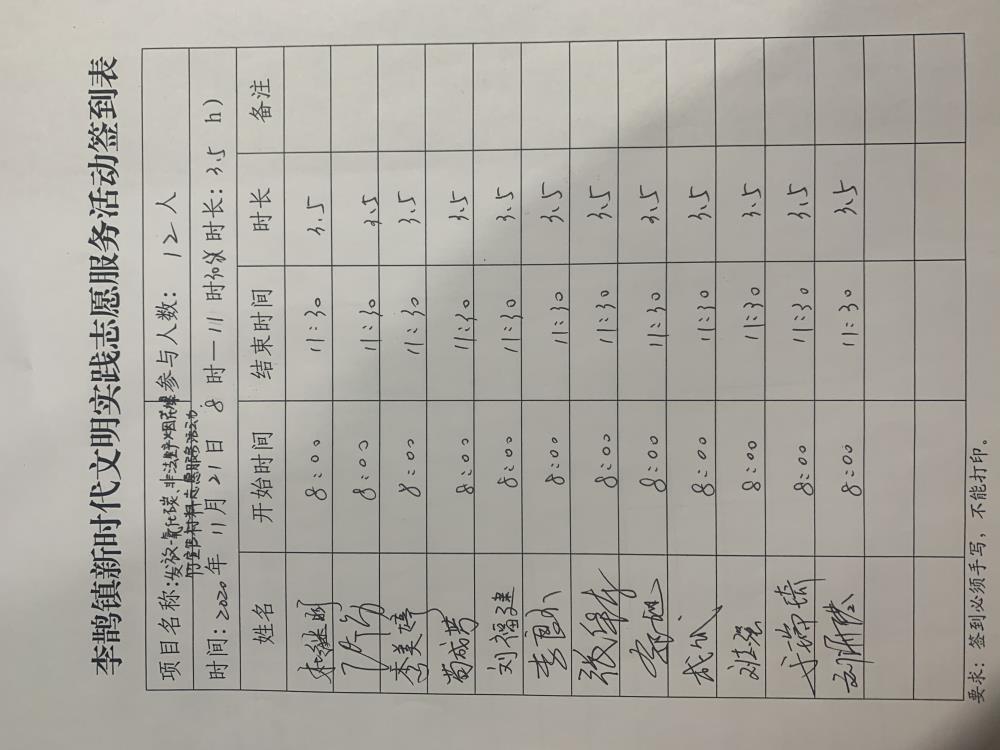 李鹊镇新时代文明实践志愿服务活动签到表
项目名称:发放一氧化碳、非法生产烟花爆 参与人数: 12人
竹宣传材料志愿服务活动
时间: 2020年 11月 21日 8时—11时30分 时长: 3.5 h)
姓名 开始时间 结束时间 时长 备注
8:00 11:30 3.5
8:00 11:30 3.5
李美婷 8:00 11:30 3.5
8:00 11:30 3.5
刘福建 8:00 11:30 3.5
8:00 11:30 3.5
8:00 11:30 3.5
8:00 11:30 3.5
8:00 11:30 3.5
8:00 11:30 3.5
8:00 11:30 3.5
8:00 11:30 3.5
要求: 签到必须手写, 不能打印。